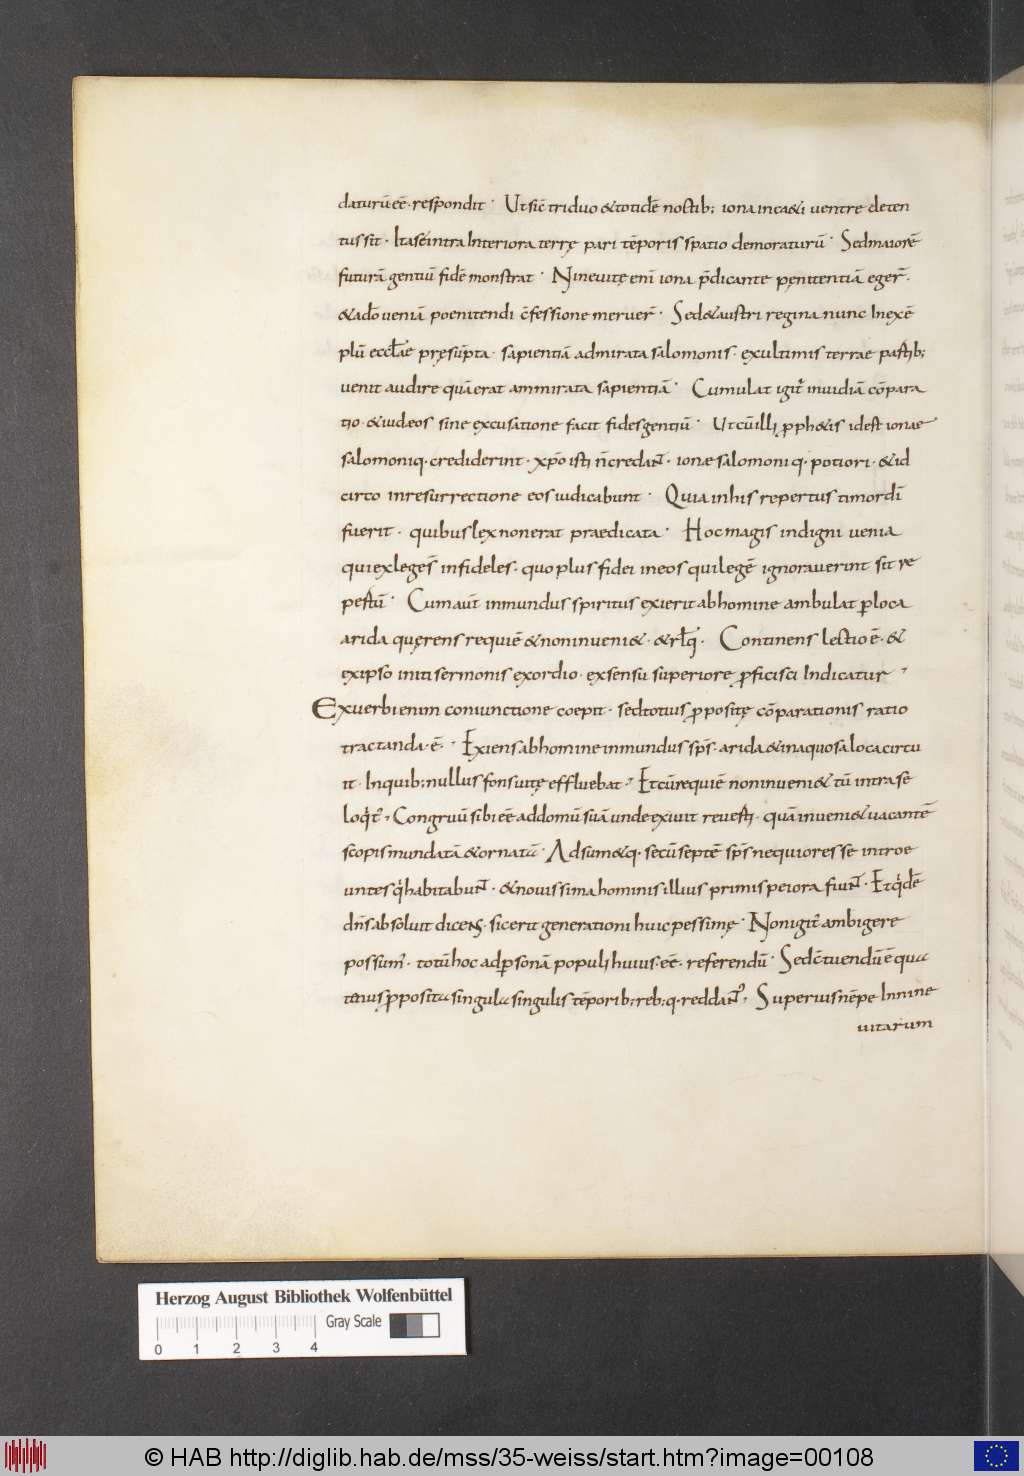 daturūeē· respondit· Utsic̄ triduo &totidē noctib; iona inca&i uentre deten
tus sit· Itaseintra Interiora terrę pari tēporis spatio demoraturū· Sedmaiorē
futurā gentiū fidē monstrat· Nineuitę enī iona p̄dicante pęnitentiā eger̄·
&ad̄o ueniā poenitendi c̄fessione meruer̄· Sed&austri regina nunc Inexē
plū eccłae pręsūpta· sapientiā admirata salomonis· exultimis terrae partib;
uenit audire quāerat ammirata sapientiā· Cumulat igit᷑ inuidiā cōpara
tio· &iudęos sine excusatione facit fidesgentiū· Utcūilli ꝓph&is idest ionae
salomoniq· crediderint· xp̄o isti n̄credanť· ionæ salomoni q· potiori· &id
circo inresurrectione eos iudicabunt· Quia inhis repertus timordī
fuerit· quibus lex nonerat praedicata· Hoc magis indigni uenia
quiexlegēs infideles· quo plus fidei ineos quilegē ignorauerint sit re
pertū· Cumaūt inmundus spiritus exierit abhomine ambulat ꝑloca
arida quęrens requiē &noninueni&· &rłq· Continens lectio ē· &
exipso initi sermonis exordio· exsensu superiore ꝓficisci Indicatur
Exuerbi enim coniunctione coepit· sedtotius ꝓpositę cōparationis ratio
tractanda· ē· Exiens abhomine inmundus sp̄s· arida &inaquosa loca circu
it· Inquib; nullus fons uitę effluebat· Etcūrequiē noninueni& tū intra se
loqͥt᷑· Congruū sibi eē addomū suā unde exiuit reuerti· quā inueni&uacantē
scopis mundatā &ornatā· Adsum&q· secū septē sp̄s nequiores se introe
untes qͥ habitabunť· &nouissima hominis illius primis peiora fiunť· Etqͥdē
dn̄s absoluit dicens· sicerit generationi huic pessimę· Nonigit᷑ ambigere
possum᷒· totū hoc adꝑsonā populi huius· eē· referendū· Sedc̄tuendū ē qua
tenus ꝓposita singula singulis tēporib; reb; q· reddanť· Superius nēpe Innine
uitarum
Herzog August Bibliothek Wolfenbüttel
Gray Scale
0 1 2 3 4
© HAB http://diglib.hab.de/mss/35-weiss/start.htm?image=00108